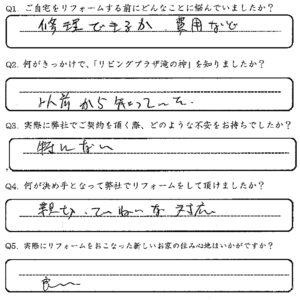 Q1. ご自宅をリフォームする前にどんなことに悩んでいましたか?
修理できるか 費用など
Q2. 何がきっかけで、「リビングプラザ滝の神」を知りましたか?
以前から知っていた。
Q3. 実際に弊社でご契約を頂く際、どのような不安をお持ちでしたか?
特にない
Q4. 何が決め手となって弊社でリフォームをして頂けましたか?
親切、ていねいな対応
Q5. 実際にリフォームをおこなった新しいお家の住み心地はいかがですか?
良い